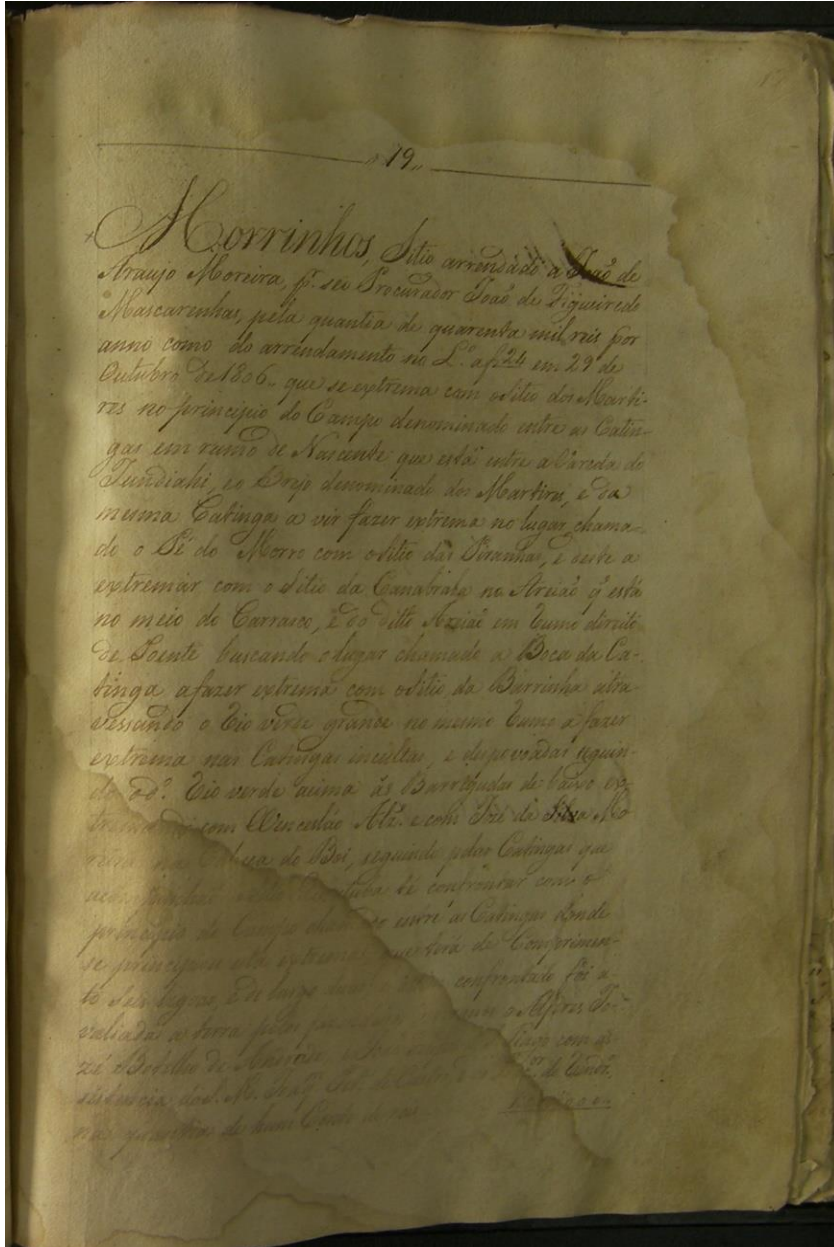 "19"
Morrinhos, Sitio arrendado a João de
Araujo Moreira, pr. seu Procurador João de Figueiredo
Mascarenhas, pela quantia de quarenta mil reis por
anno como do arrendamento no L.º a f 24 en. 29 de
Outubro de 1806. que se extrema com o Sitio dos Marti-
res no principio do Campo denominado entre as Catin-
gas em rumo de Nascente que está entre a Vareda do
Jundiahi, e o Brejo denominado dos Martires, e da
mesma Catinga a vir fazer extrema no lugar chama-
do o Pé do Morro com o Sitio das Piranhas, e deste a
extremar com o Sitio da Canabrava no Areião q está
no meio do Carrasco, e do ditto Areião em rumo direito
de Poente buscando o lugar chamado a Boca da Ca-
tinga a fazer extrema com o Sitio da Barrinha atra-
vessando o Rio verde grande no mesmo rumo a fazer
extrema nas Catingas incultas, e despovoadas seguin-
do o d.º Rio verde acima ás Barrigudas de baixo ex-
com Wenceslão Alz. e com José da Silva Mo-
reira na Cabeça do Boi, seguindo pelas Catingas que
té confrontar com o
principio do Campo entre as Catingas donde
se principiou esta extrema que terá de Comprimen-
to seis legoas, e de largo duas confrontado foi a-
valiada a terra pelos o Alferes Jo-
zé Botelho de Andrade com as-
sistencia do
na quantia de hum Conto de reis